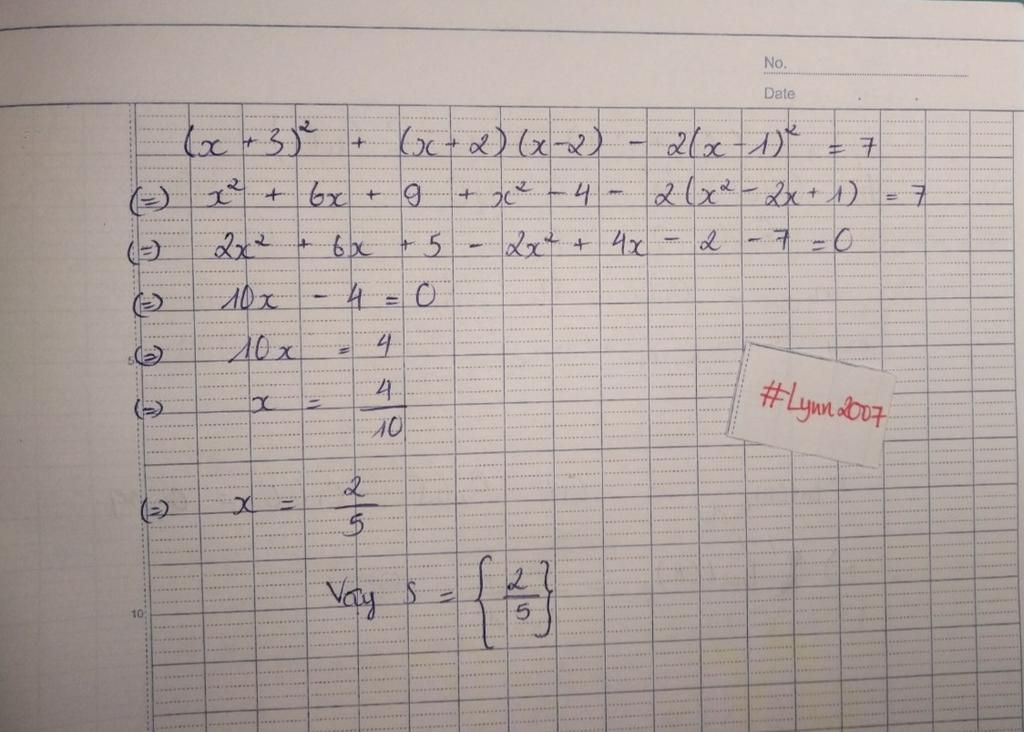 No.
Date
(x + 3)² + (x + 2)(x - 2) - 2(x - 1)² = 7
(=) x² + 6x + 9 + x² - 4 - 2(x² - 2x + 1) = 7
(=) 2x² + 6x + 5 - 2x² + 4x - 2 - 7 = 0
(=) 10x - 4 = 0
5 (=) 10x = 4
(=) x = 4/10
#Lynn2007
(=) x = 2/5
10 Vậy S = {2/5}